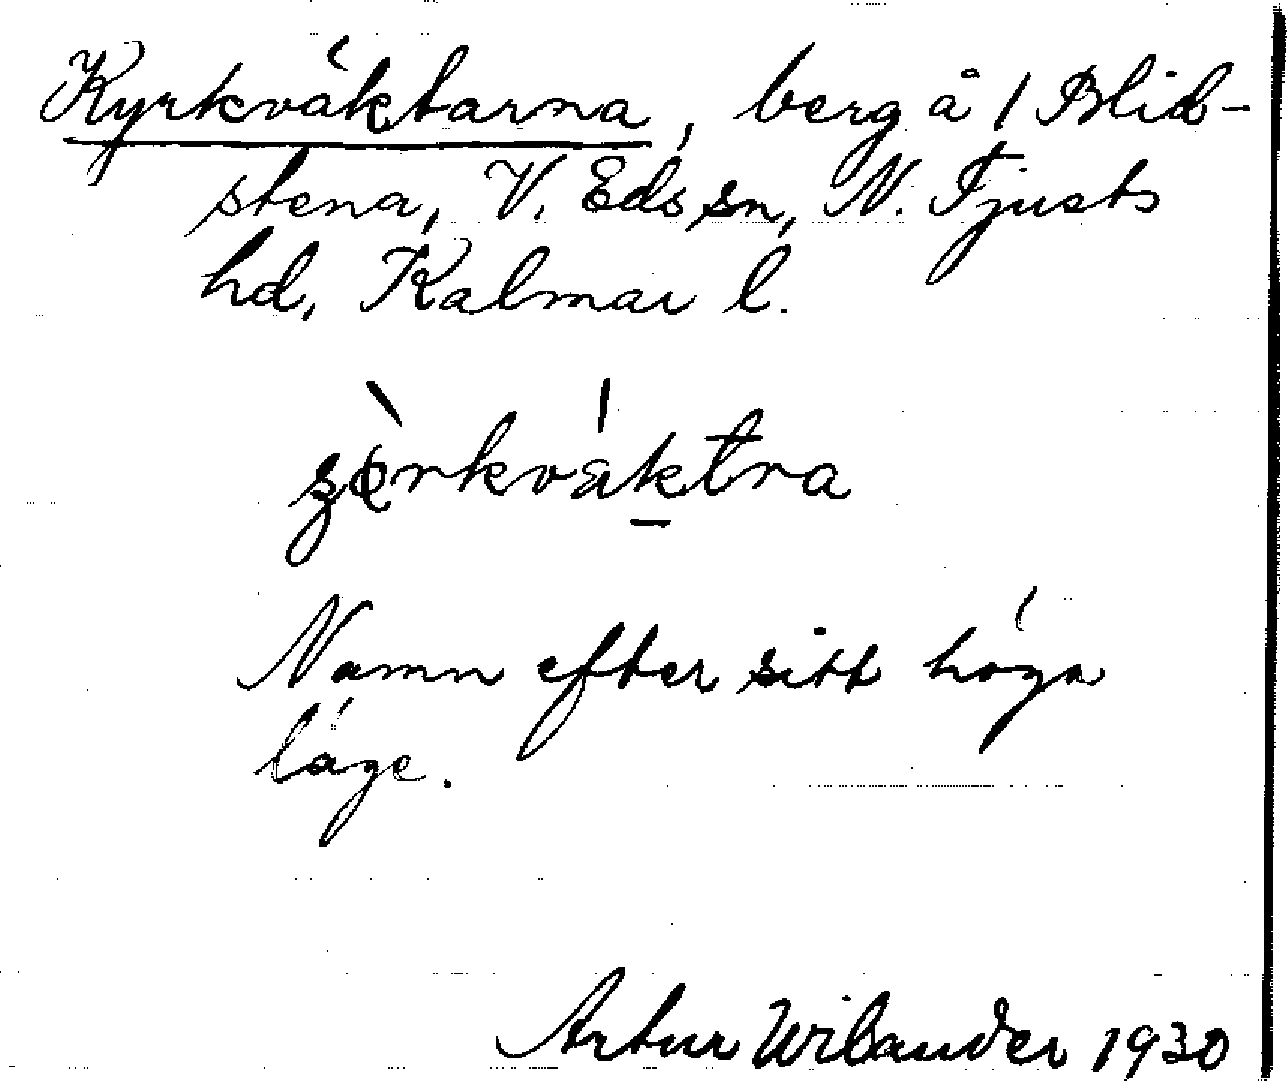 Kyrkväktarna, berg å 1 Blid-
stena, V. Eds sn, N. Tjusts
hd, Kalmar l.
Namn efter sitt höga
läge.
Artur Wilander 1930